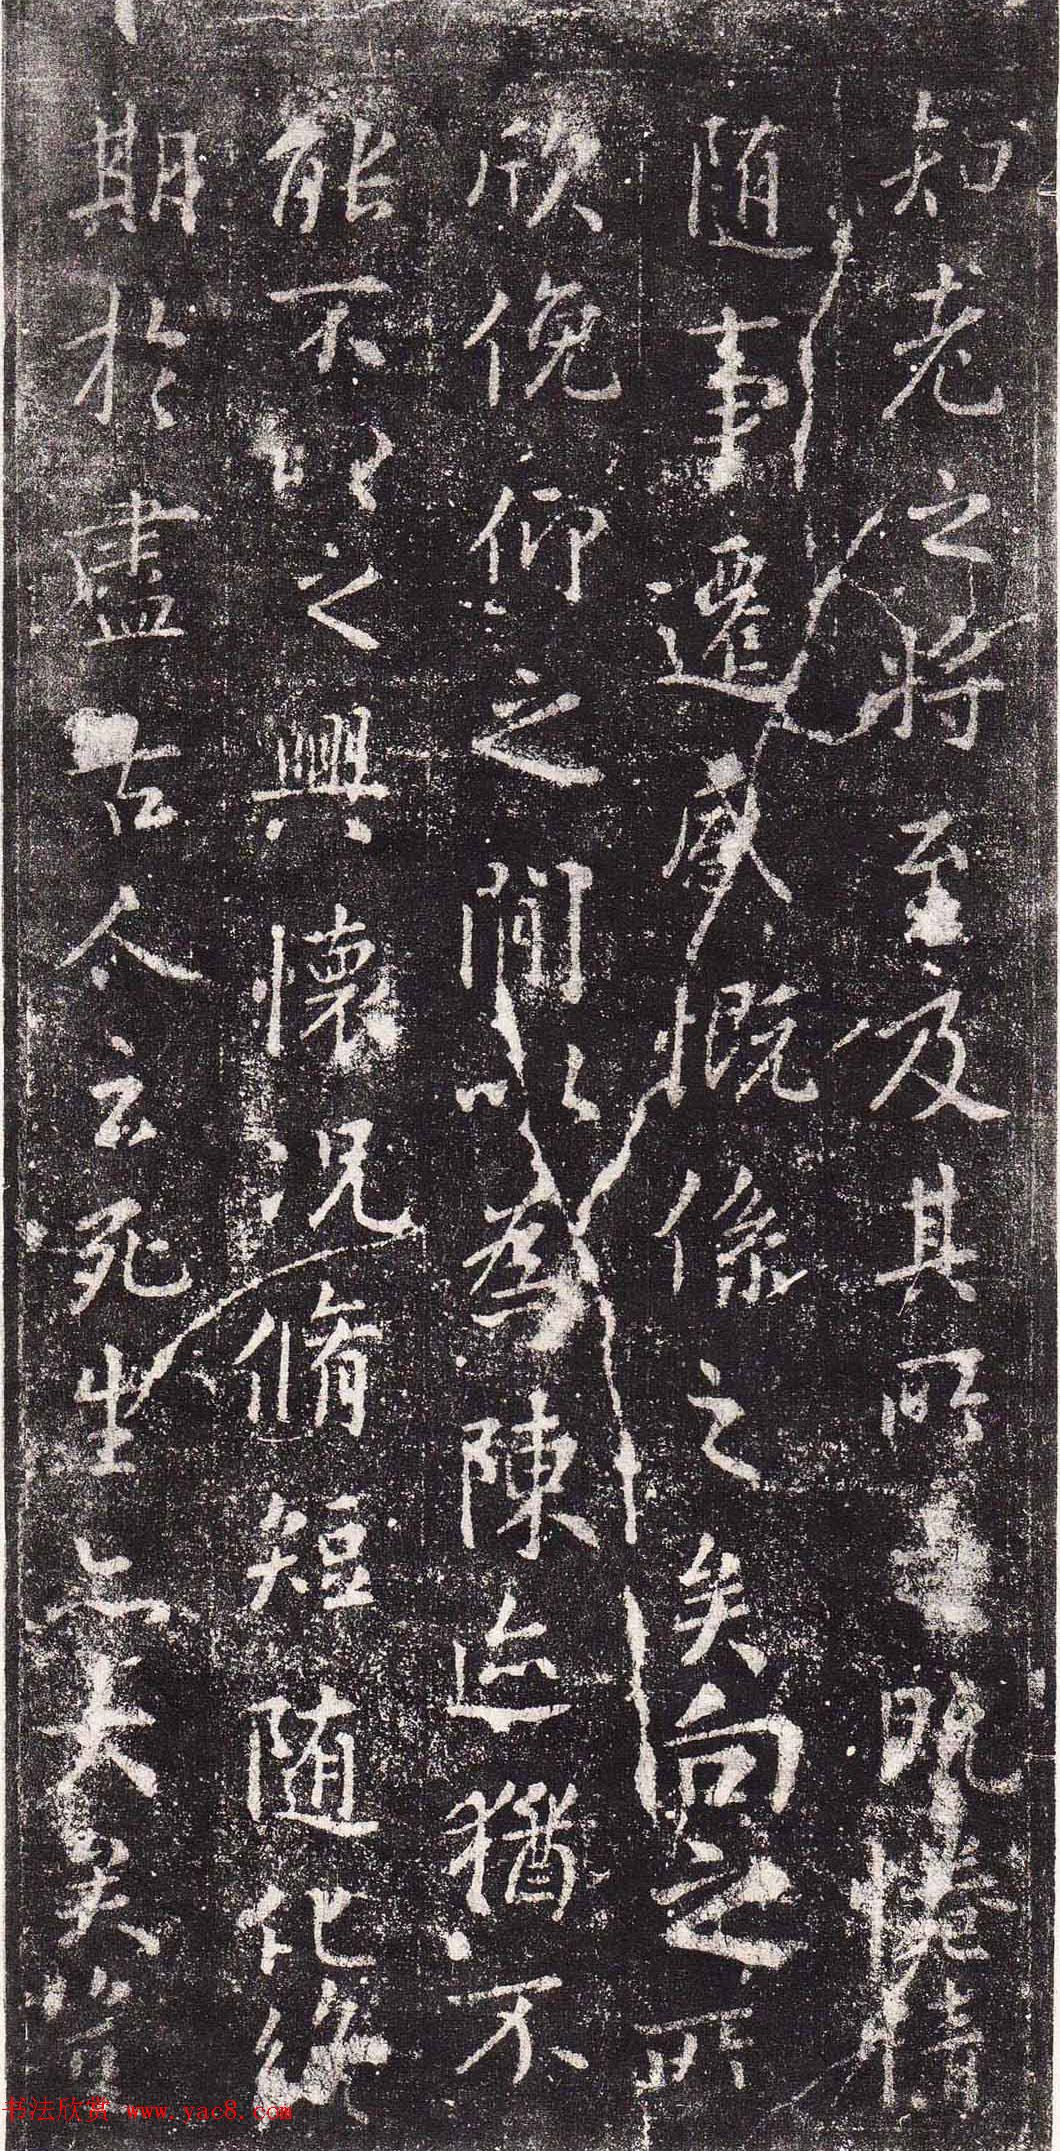 知老之將至及其所之既惓情
隨事遷感慨係之矣向之所
欣俛仰之間以為陳迹猶不
能不以之興懷況脩短隨化終
期於盡古人云死生亦大矣豈
书法欣赏 www.yac8.com